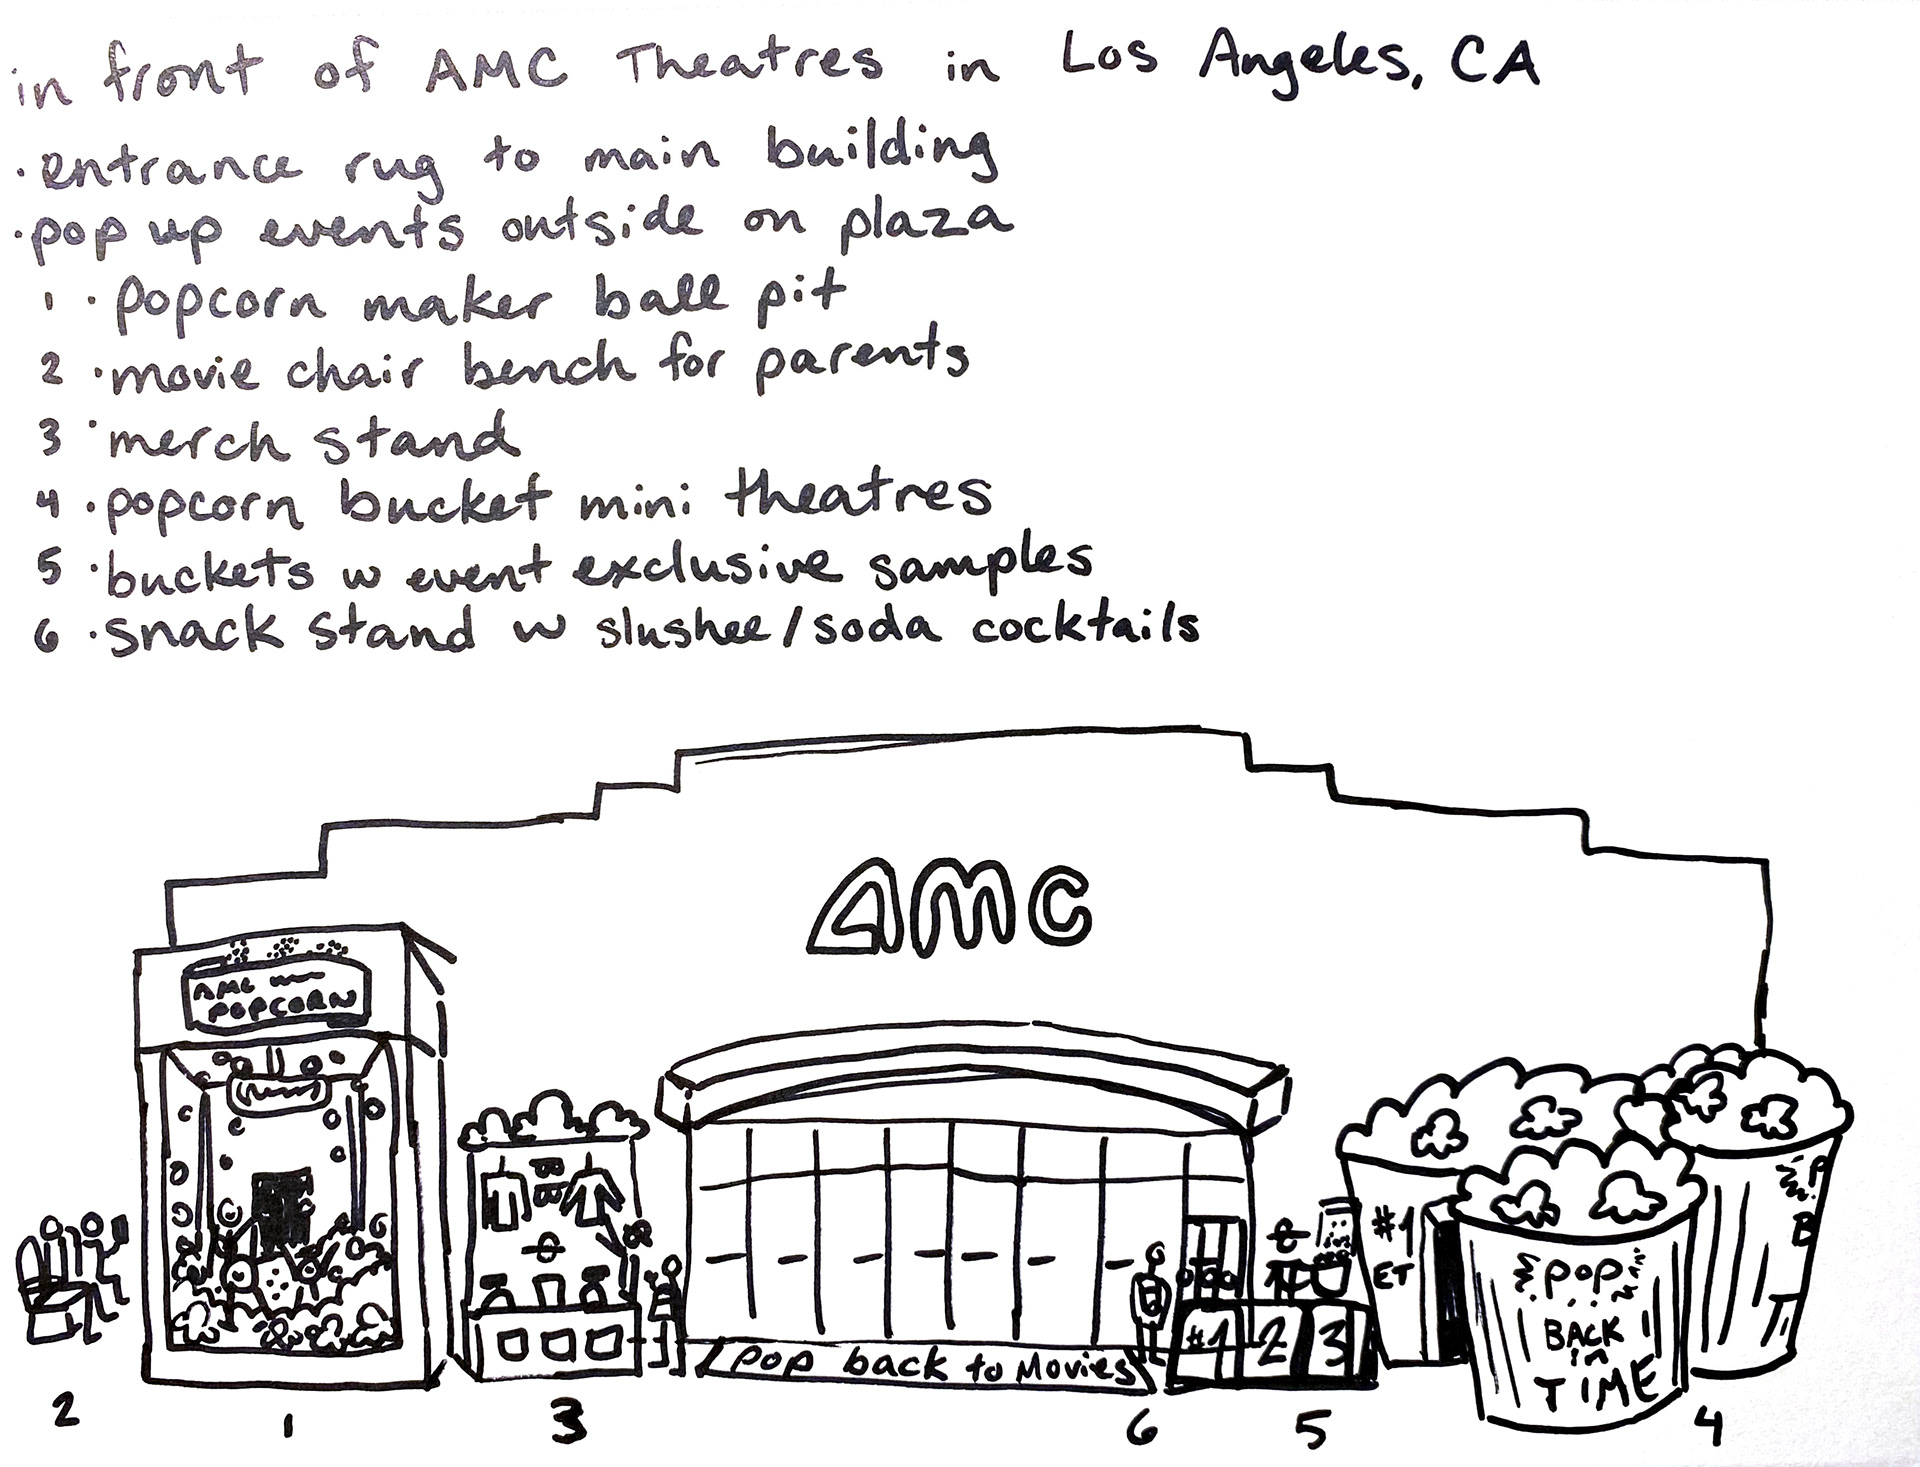 in front of AMC Theatres in Los Angeles, CA
·entrance rug to main building
·pop up events outside on plaza
1 ·popcorn maker ball pit
2 ·movie chair bench for parents
3 ·merch stand
4 ·popcorn bucket mini theatres
5 ·buckets w event exclusive samples
6 ·snack stand w slushee/soda cocktails
AMC
AMC
POPCORN
#1
ET
POP
BACK
in
TIME
P
B
#1 2 3
Pop back to Movies
2 1 3 6 5 4